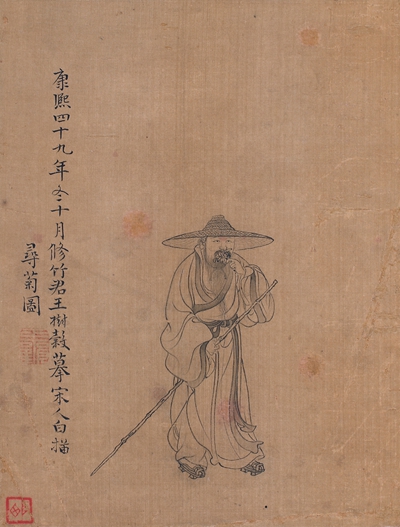 康熙四十九年冬十月修竹君王樹穀摹宋人白描
尋菊圖